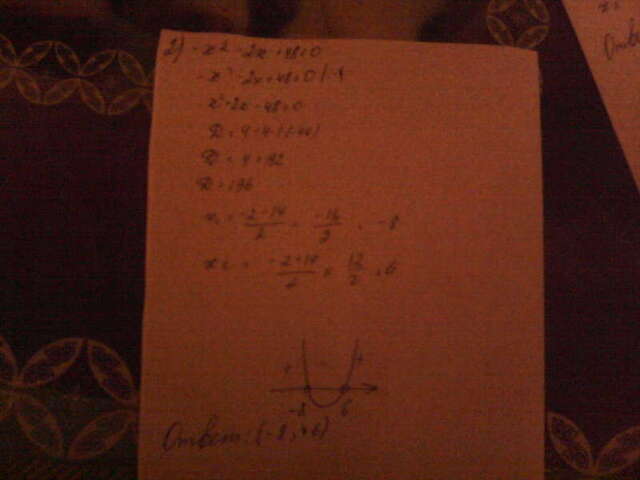 2) -x² - 2x + 48 > 0
-x² - 2x + 48 = 0 | -1
x² + 2x - 48 = 0
D = 4 - 4 · (-48)
D = 4 + 192
D = 196
x₁ = -2-14/2 = -16/2 = -8
x₂ = -2+14/2 = 12/2 = 6
+ - +
-8 6
Ответ: (-8; +6)